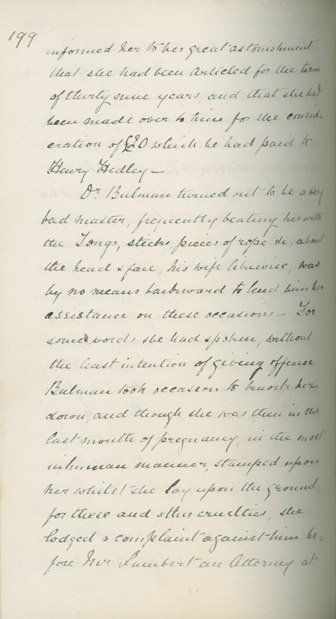 199
informed her to her great astonishment
that she had been articled for the term
of thirty nine years, and that she had
been made over to him for the consid-
eration of £20 which he had paid to
Henry Hedley —
Dr. Bulman turned out to be a very
bad master, frequently beating her with
the Tongs, sticks, pieces of rope &c, about
the head & face, his wife likewise, was
by no means backward to lend him her
assistance on these occasions — For
some words she had spoken, without
the least intention of giving offence
Bulman took occasion to knock her
down, and though she was then in the
last month of pregnancy, in the most
inhuman manner, stamped upon
her whilst she lay upon the ground
for these and other cruelties, she
lodged a complaint against him be-
fore Mr. Lambert an Attorney at